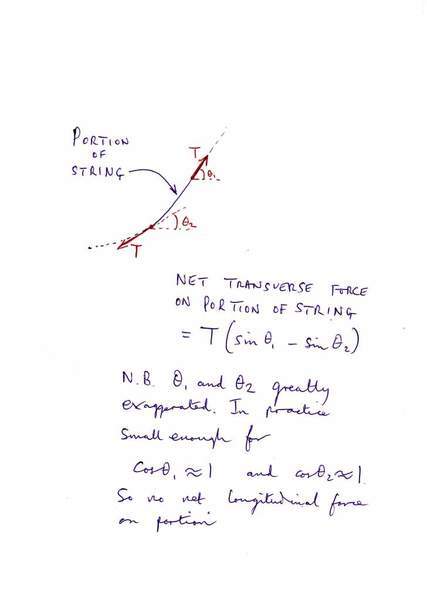 PORTION
OF
STRING
T
θ₁
θ₂
T
NET TRANSVERSE FORCE
ON PORTION OF STRING
= T (sin θ₁ - sin θ₂)
N.B. θ₁ and θ₂ greatly
exaggerated. In practice
small enough for
cos θ₁ ≈ 1 and cos θ₂ ≈ 1.
So no net longitudinal force
on portion